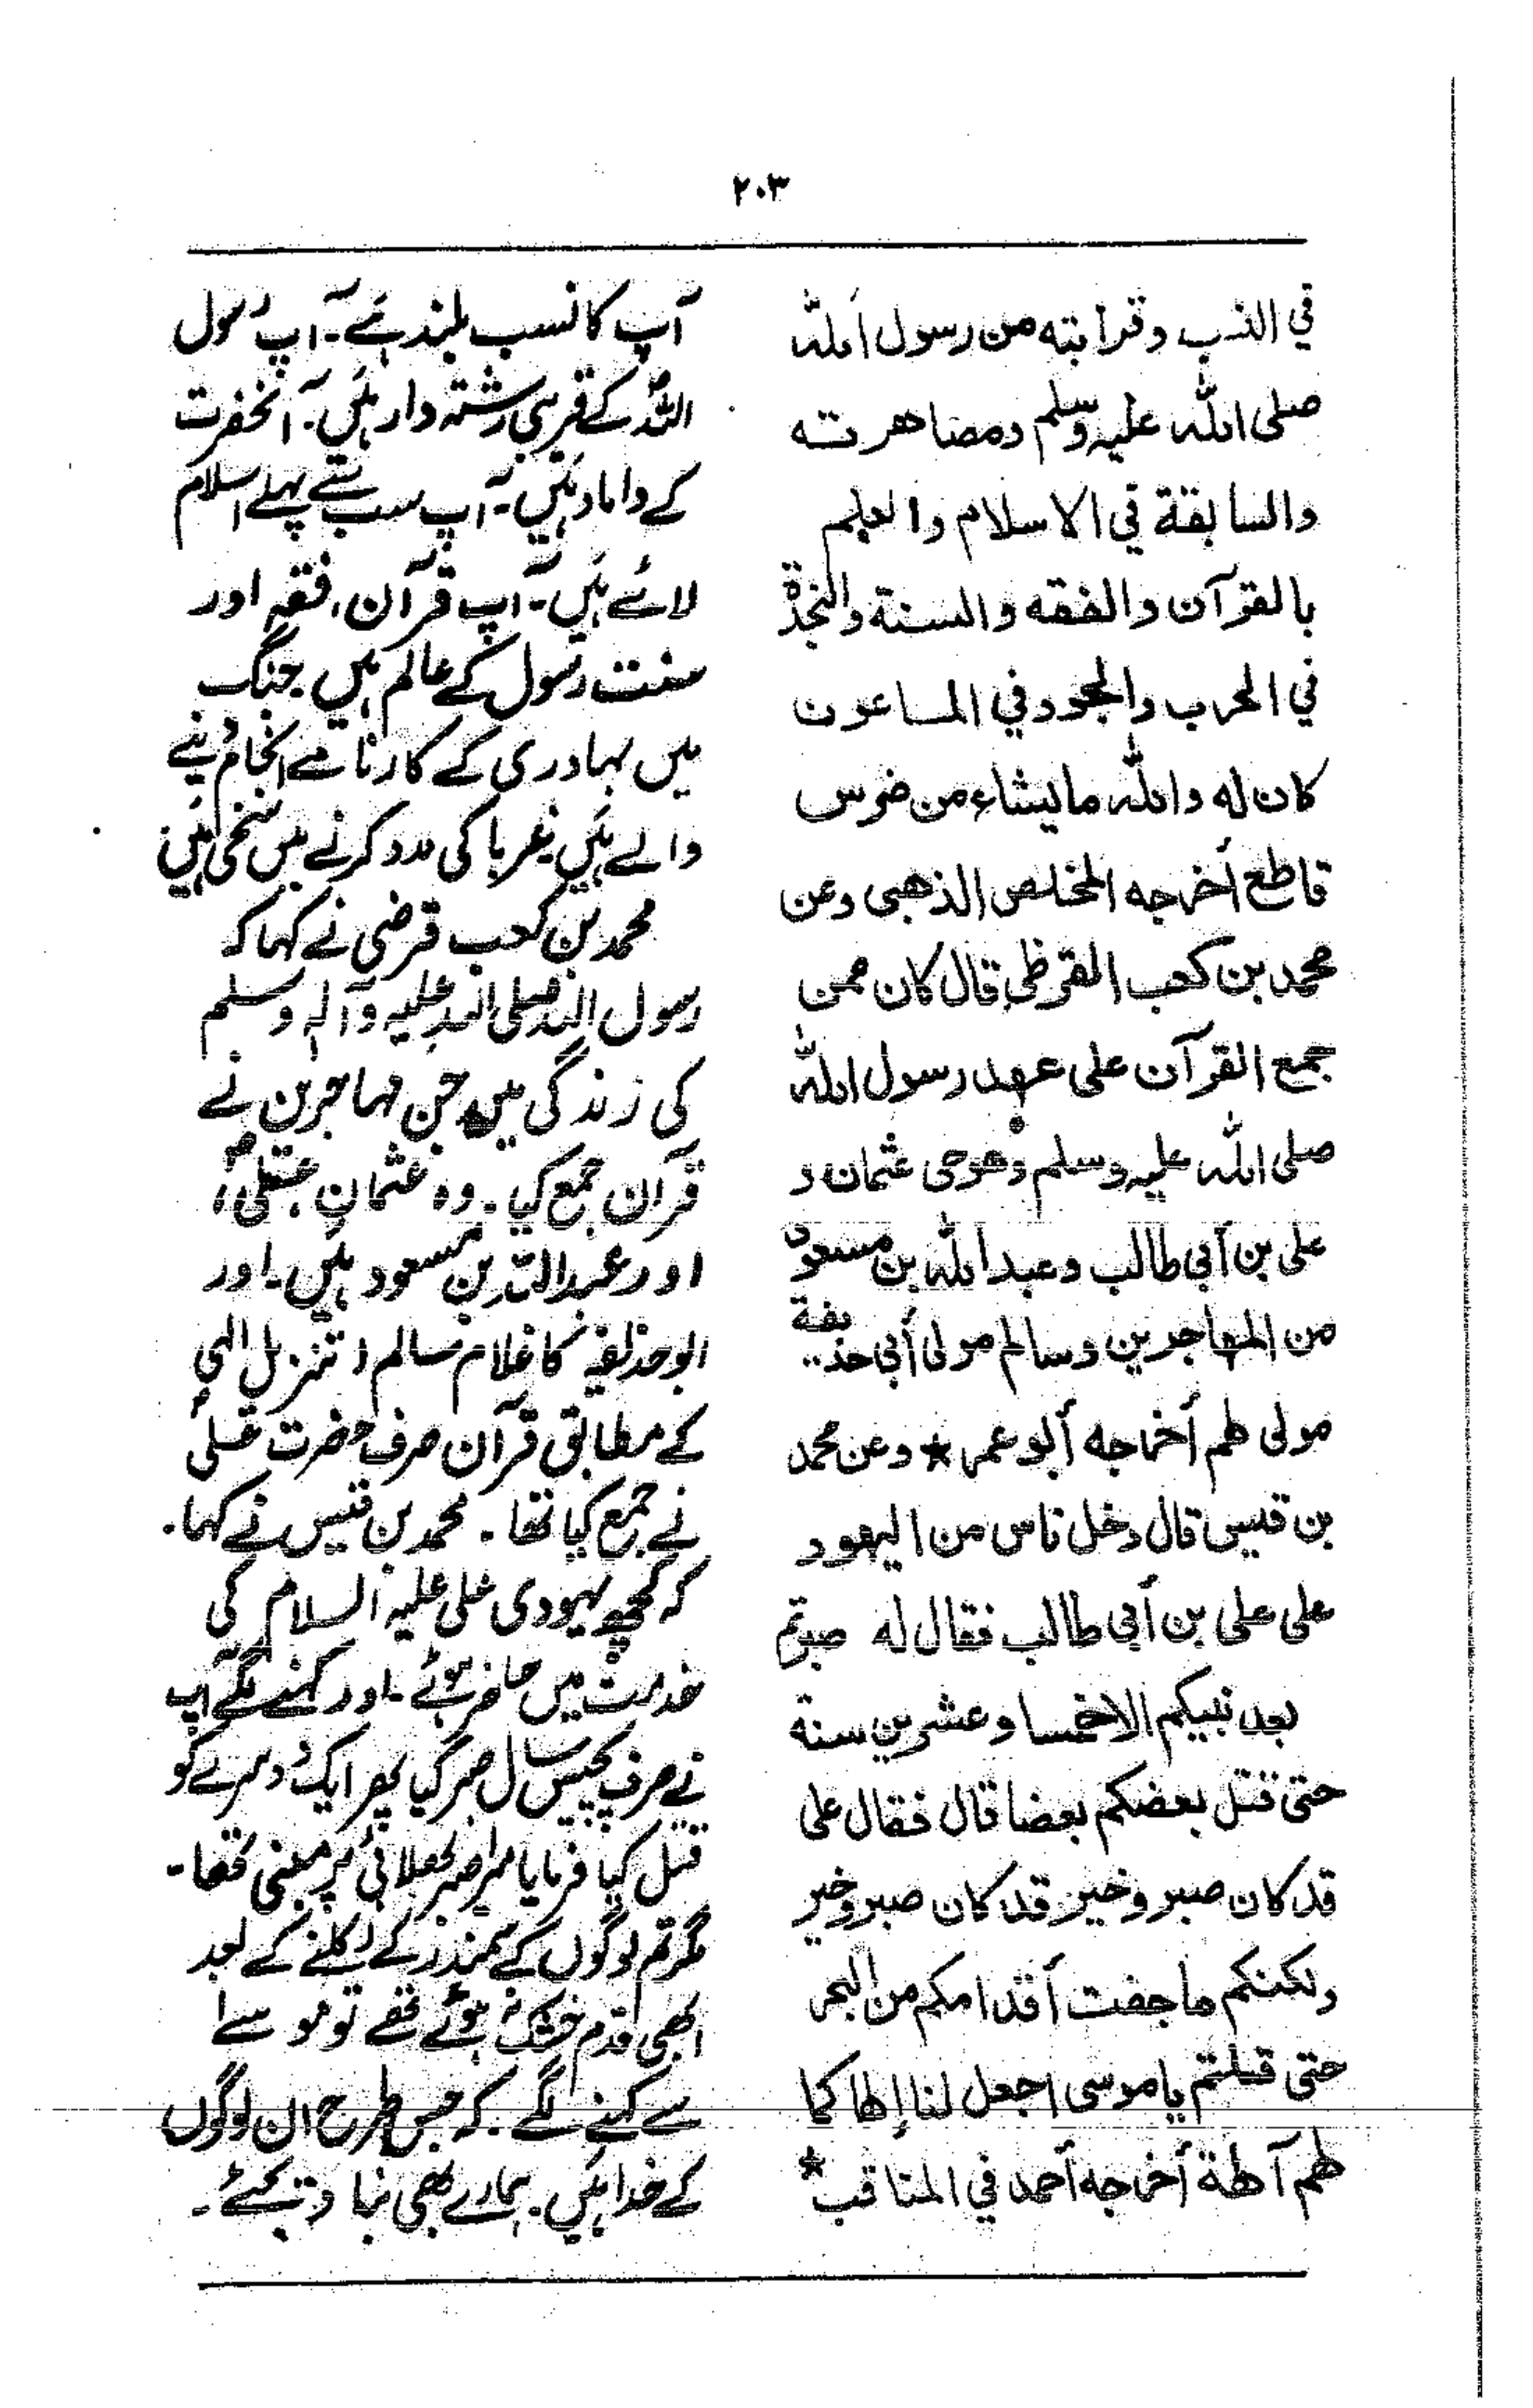 ۲۰۳
في النسب وقرابته من رسول الله
صلى الله عليه وسلم ومصاهرته
والسابقة في الاسلام والعلم
بالقرآن والفقه والسنة والنجدة
في الحرب والجود في الماعون
كان له والله مايشاء من ضرس
قاطع أخرجه المخلص الذهبى وعن
محمد بن كعب القرظي قال كان ممن
جمع القرآن على عهد رسول الله
صلى الله عليه وسلم وهوحى عثمان و
على بن أبي طالب وعبد الله بن مسعود
من المهاجرين وسالم مولى أبي حذيفة
مولى لهم أخرجه أبو عمر ★ وعن محمد
بن قيس قال دخل ناس من اليهود
على على بن أبي طالب فقال له صبرتم
بعد نبيكم الاخمسا وعشرين سنة
حتى قتل بعضكم بعضا قال فقال على
قد كان صبر وخير قد كان صبر وخير
ولكنكم ماجفت أقدامكم من البحر
حتى قلتم ياموسى اجعل لنا إلها كما
لهم آلهة أخرجه أحمد في المناقب ★
آپ کا نسب بلند ہے۔ آپ رسول
اللہ کے قریبی رشتہ دار ہیں۔ آنحضرت
کے داماد ہیں۔ آپ سب سے پہلے اسلام
لائے ہیں۔ آپ قرآن، فقہ اور
سنت رسول کے عالم ہیں جنگ
میں بہادری کے کارنامے انجام دینے
والے ہیں غربا کی مدد کرنے میں سخی ہیں
محمد بن کعب قرضی نے کہا کہ
رسول اللہ صلی اللہ علیہ وآلہ وسلم
کی زندگی میں جن مہاجرین نے
قرآن جمع کیا۔ وہ عثمان، علیؑ،
اور عبداللہ بن مسعود ہیں۔ اور
ابوحذیفہ کا غلام سالم، تنزیل الہی
کے مطابق قرآن صرف حضرت علیؑ
نے جمع کیا تھا۔ محمد بن قیس نے کہا۔
کہ کچھ یہودی علی علیہ السلام کی
خدمت میں حاضر ہوئے۔ اور کہنے لگے آپ
نے صرف پچیس سال صبر کیا پھر ایک دوسرے کو
قتل کیا فرمایا میرا صبر بھلائی پر مبنی تھا۔
مگر تم لوگوں کے سمندر کے نکلنے کے بعد
ابھی قدم خشک نہ ہوئے تھے تو موسےٰ
سے کہنے لگے۔ کہ جس طرح ان لوگوں
کے خدا ہیں۔ ہمارے بھی بنا دیجئے۔